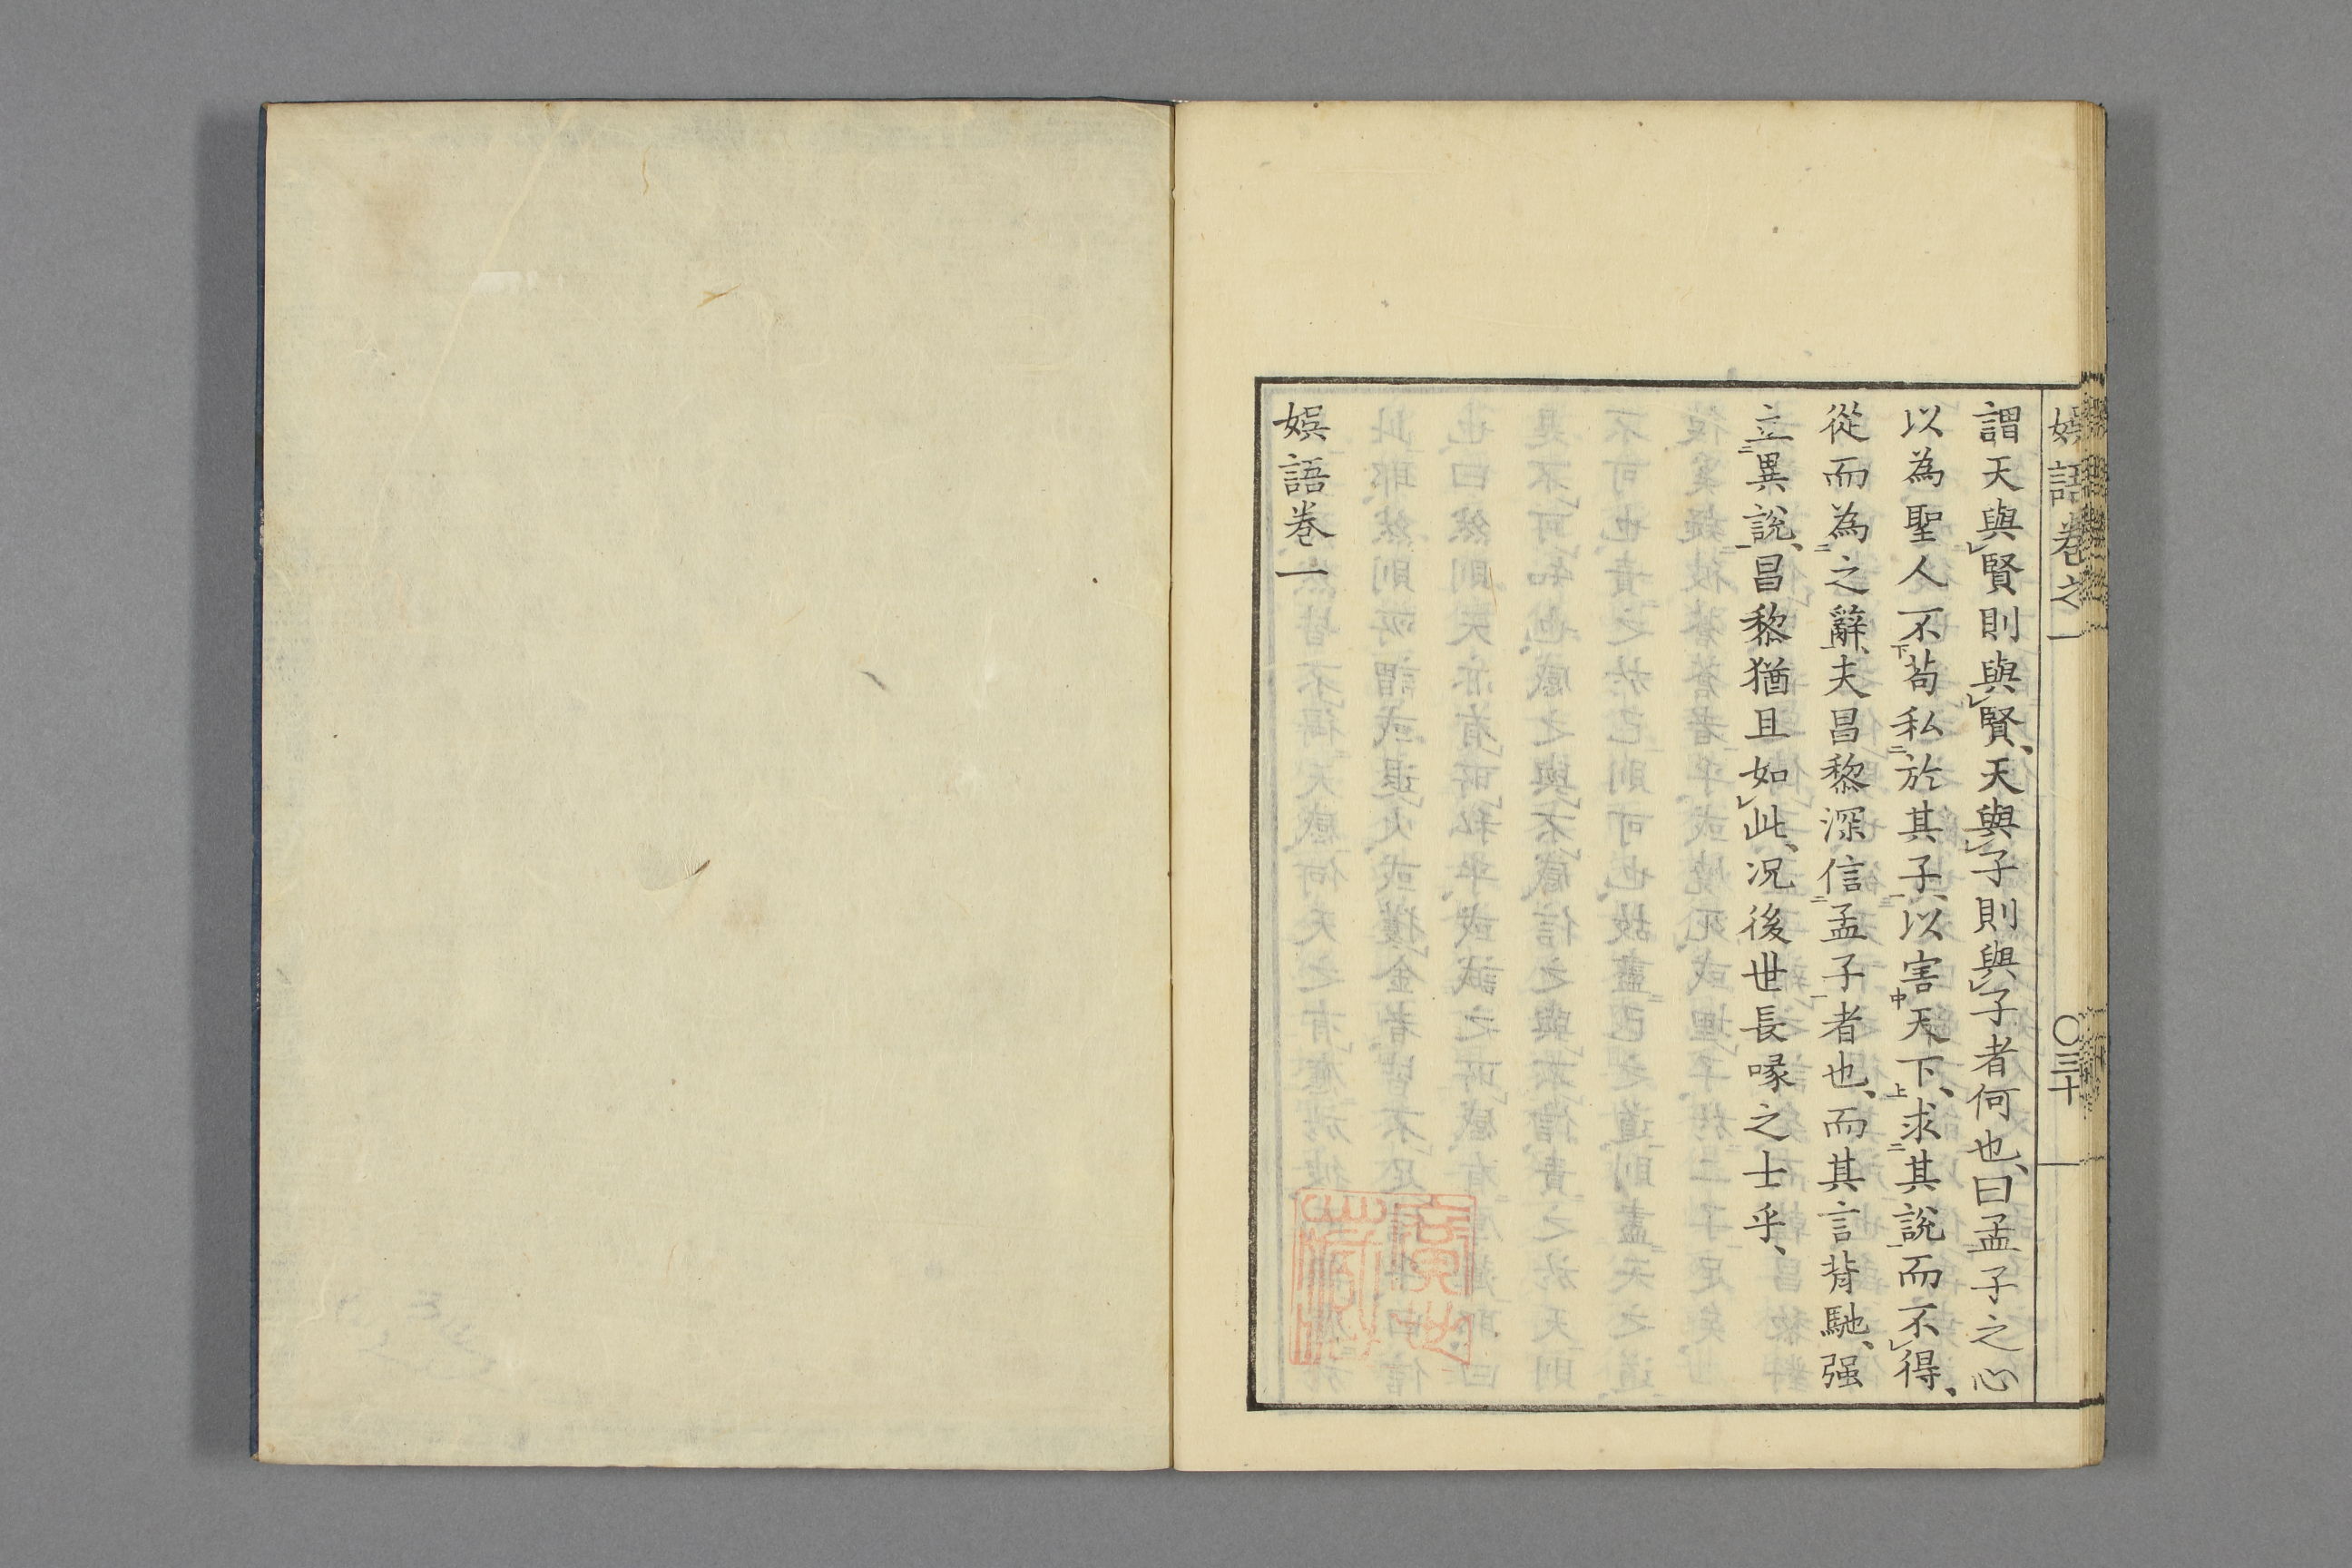 娯語卷之一　〇三十
謂天與㆑賢則與㆑賢、天與㆑子則與㆑子者何也、曰孟子之心
以為聖人不㆘苟私㆓於其子㆒、以害㆗天下㆖、求㆓其說㆒而不㆑得、
從而為㆓之辭㆒、夫昌黎深信㆓孟子㆒者也、而其言背馳、强
立㆓異說㆒、昌黎猶且如㆑此、况後世長喙之士乎、
娯語卷一